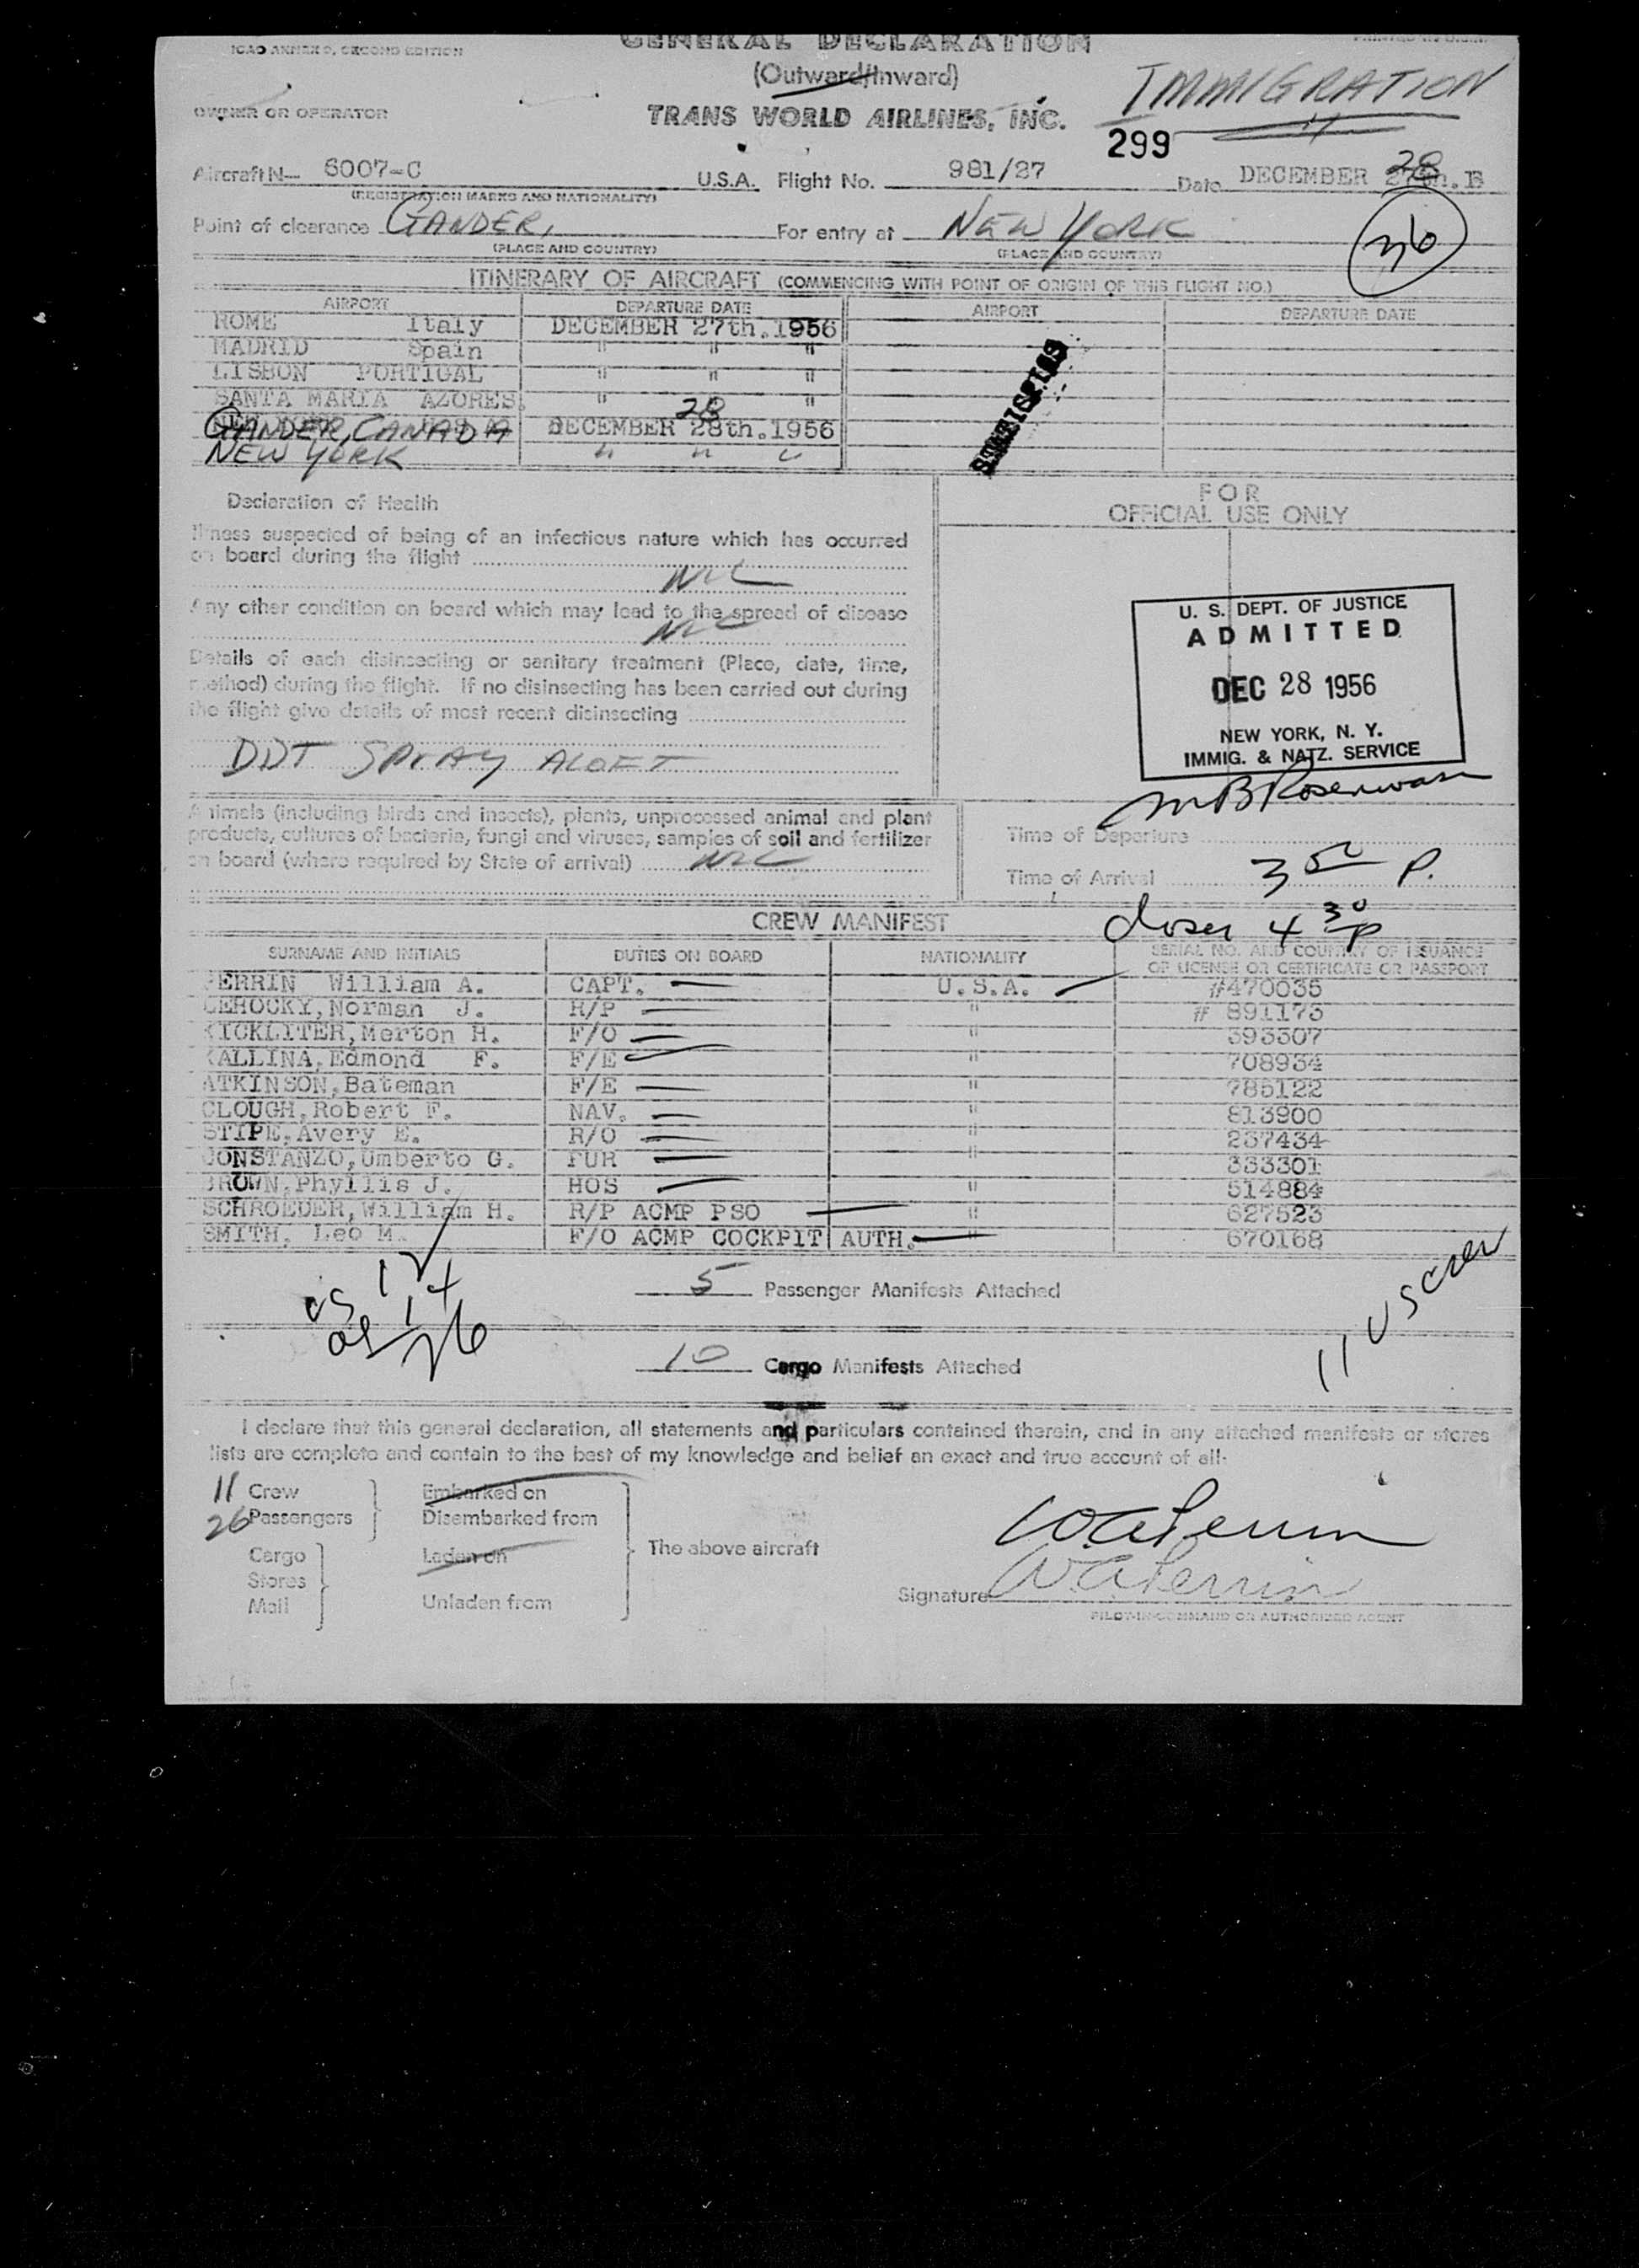 ICAO ANNEX 9, SECOND EDITION
GENERAL DECLARATION
(Outward/Inward)
IMMIGRATION
OWNER OR OPERATOR
TRANS WORLD AIRLINES, INC.
299
Aircraft N— 6007-C U.S.A. Flight No. 981/27 Date DECEMBER 28
(REGISTRATION MARKS AND NATIONALITY)
Point of clearance GANDER, For entry at NEW YORK
(PLACE AND COUNTRY) (PLACE AND COUNTRY)
36
ITINERARY OF AIRCRAFT (COMMENCING WITH POINT OF ORIGIN OF THIS FLIGHT NO.)
AIRPORT DEPARTURE DATE AIRPORT DEPARTURE DATE
ROME Italy DECEMBER 27th.1956
MADRID Spain " " "
LISBON PORTIGAL " " "
SANTA MARIA AZORES. " 28 "
GANDER, CANADA DECEMBER 28th.1956
NEW YORK " " "
STATISTICS
Declaration of Health
FOR
OFFICIAL USE ONLY
Illness suspected of being of an infectious nature which has occurred
on board during the flight
NIL
Any other condition on board which may lead to the spread of disease
NIL
Details of each disinsecting or sanitary treatment (Place, date, time,
method) during the flight. If no disinsecting has been carried out during
the flight give details of most recent disinsecting
DDT SPRAY ALOFT
U. S. DEPT. OF JUSTICE
ADMITTED
DEC 28 1956
NEW YORK, N. Y.
IMMIG. & NATZ. SERVICE
Animals (including birds and insects), plants, unprocessed animal and plant
products, cultures of bacteria, fungi and viruses, samples of soil and fertilizer
on board (where required by State of arrival) NIL
Time of Departure
Time of Arrival 3 50 P.
CREW MANIFEST
4 30 p
SURNAME AND INITIALS DUTIES ON BOARD NATIONALITY SERIAL NO. AND COUNTRY OF ISSUANCE
OF LICENSE OR CERTIFICATE OR PASSPORT
PERRIN William A. CAPT. U.S.A. #470035
GEROCKY, Norman J. R/P " # 891175
KICKLITER, Merton H. F/O " 393507
KALLINA, Edmond F. F/E " 708934
ATKINSON, Bateman F/E " 785122
CLOUGH, Robert F. NAV. " 813900
STIPE, Avery E. R/O " 237434
CONSTANZO, Umberto G. PUR " 333301
BROWN, Phyllis J. HOS " 514884
SCHROEDER, William H. R/P ACMP PSO " 627523
SMITH, Leo M. F/O ACMP COCKPIT AUTH. " 670168
US 12
14
26
5 Passenger Manifests Attached
11 US crew
10 Cargo Manifests Attached
I declare that this general declaration, all statements and particulars contained therein, and in any attached manifests or stores
lists are complete and contain to the best of my knowledge and belief an exact and true account of all:
11 Crew Embarked on
26 Passengers Disembarked from
Cargo Laden on The above aircraft
Stores
Mail Unladen from
W.A. Perrin
Signature W.A. Perrin
PILOT-IN-COMMAND OR AUTHORIZED AGENT